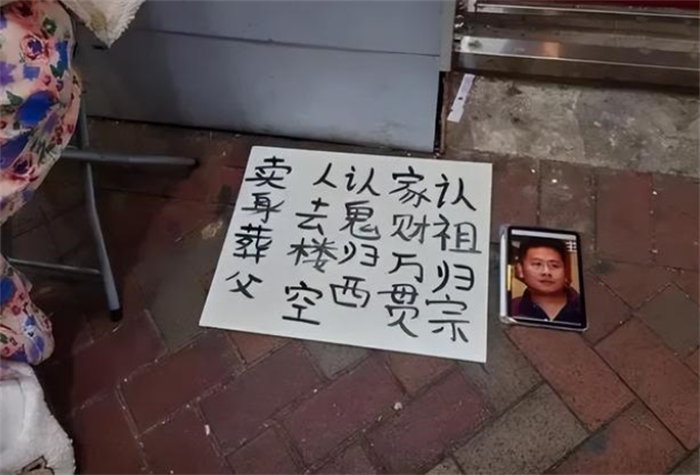 认祖归宗
家财万贯
认鬼归西
人去楼空
卖身葬父